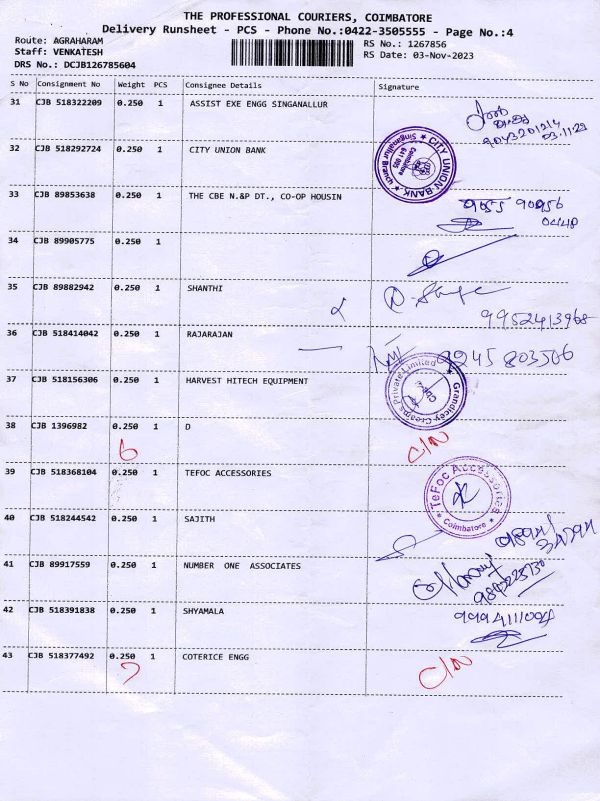 THE PROFESSIONAL COURIERS, COIMBATORE
Delivery Runsheet - PCS - Phone No.:0422-3505555 - Page No.:4
Route: AGRAHARAM
Staff: VENKATESH
DRS No.: DCJB126785604
RS No.: 1267856
RS Date: 03-Nov-2023
S No Consignment No Weight PCS Consignee Details Signature
31 CJB 518322209 0.250 1 ASSIST EXE ENGG SINGANALLUR
03.11.23
32 CJB 518292724 0.250 1 CITY UNION BANK
* CITY UNION BANK * Singanallur Branch
Coimbatore
641 005
33 CJB 89853638 0.250 1 THE CBE N.&P DT., CO-OP HOUSIN
9055 90956
0448
34 CJB 89905775 0.250 1
35 CJB 89882942 0.250 1 SHANTHI
9952413968
36 CJB 518414042 0.250 1 RAJARAJAN
9245 803566
37 CJB 518156306 0.250 1 HARVEST HITECH EQUIPMENT
Private Limited
38 CJB 1396982 0.250 1 D
6 C/N
39 CJB 518368104 0.250 1 TEFOC ACCESSORIES
TeFoc Accessories * Coimbatore *
40 CJB 518244542 0.250 1 SAJITH
41 CJB 89917559 0.250 1 NUMBER ONE ASSOCIATES
42 CJB 518391838 0.250 1 SHYAMALA
43 CJB 518377492 0.250 1 COTERICE ENGG
7 C/N